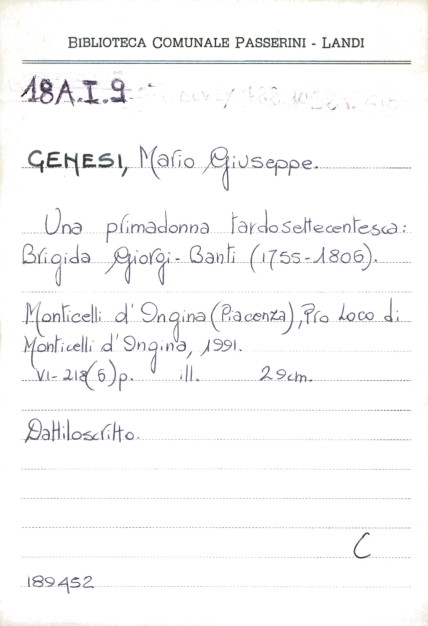 BIBLIOTECA COMUNALE PASSERINI - LANDI
18A.I.9
GENESI, Mario Giuseppe.
Una primadonna tardosettecentesca:
Brigida Giorgi-Banti (1755-1806).
Monticelli d'Ongina (Piacenza), Pro Loco di
Monticelli d'Ongina, 1991.
VI-218(6)p. ill. 29cm.
Dattiloscritto.
C
189452